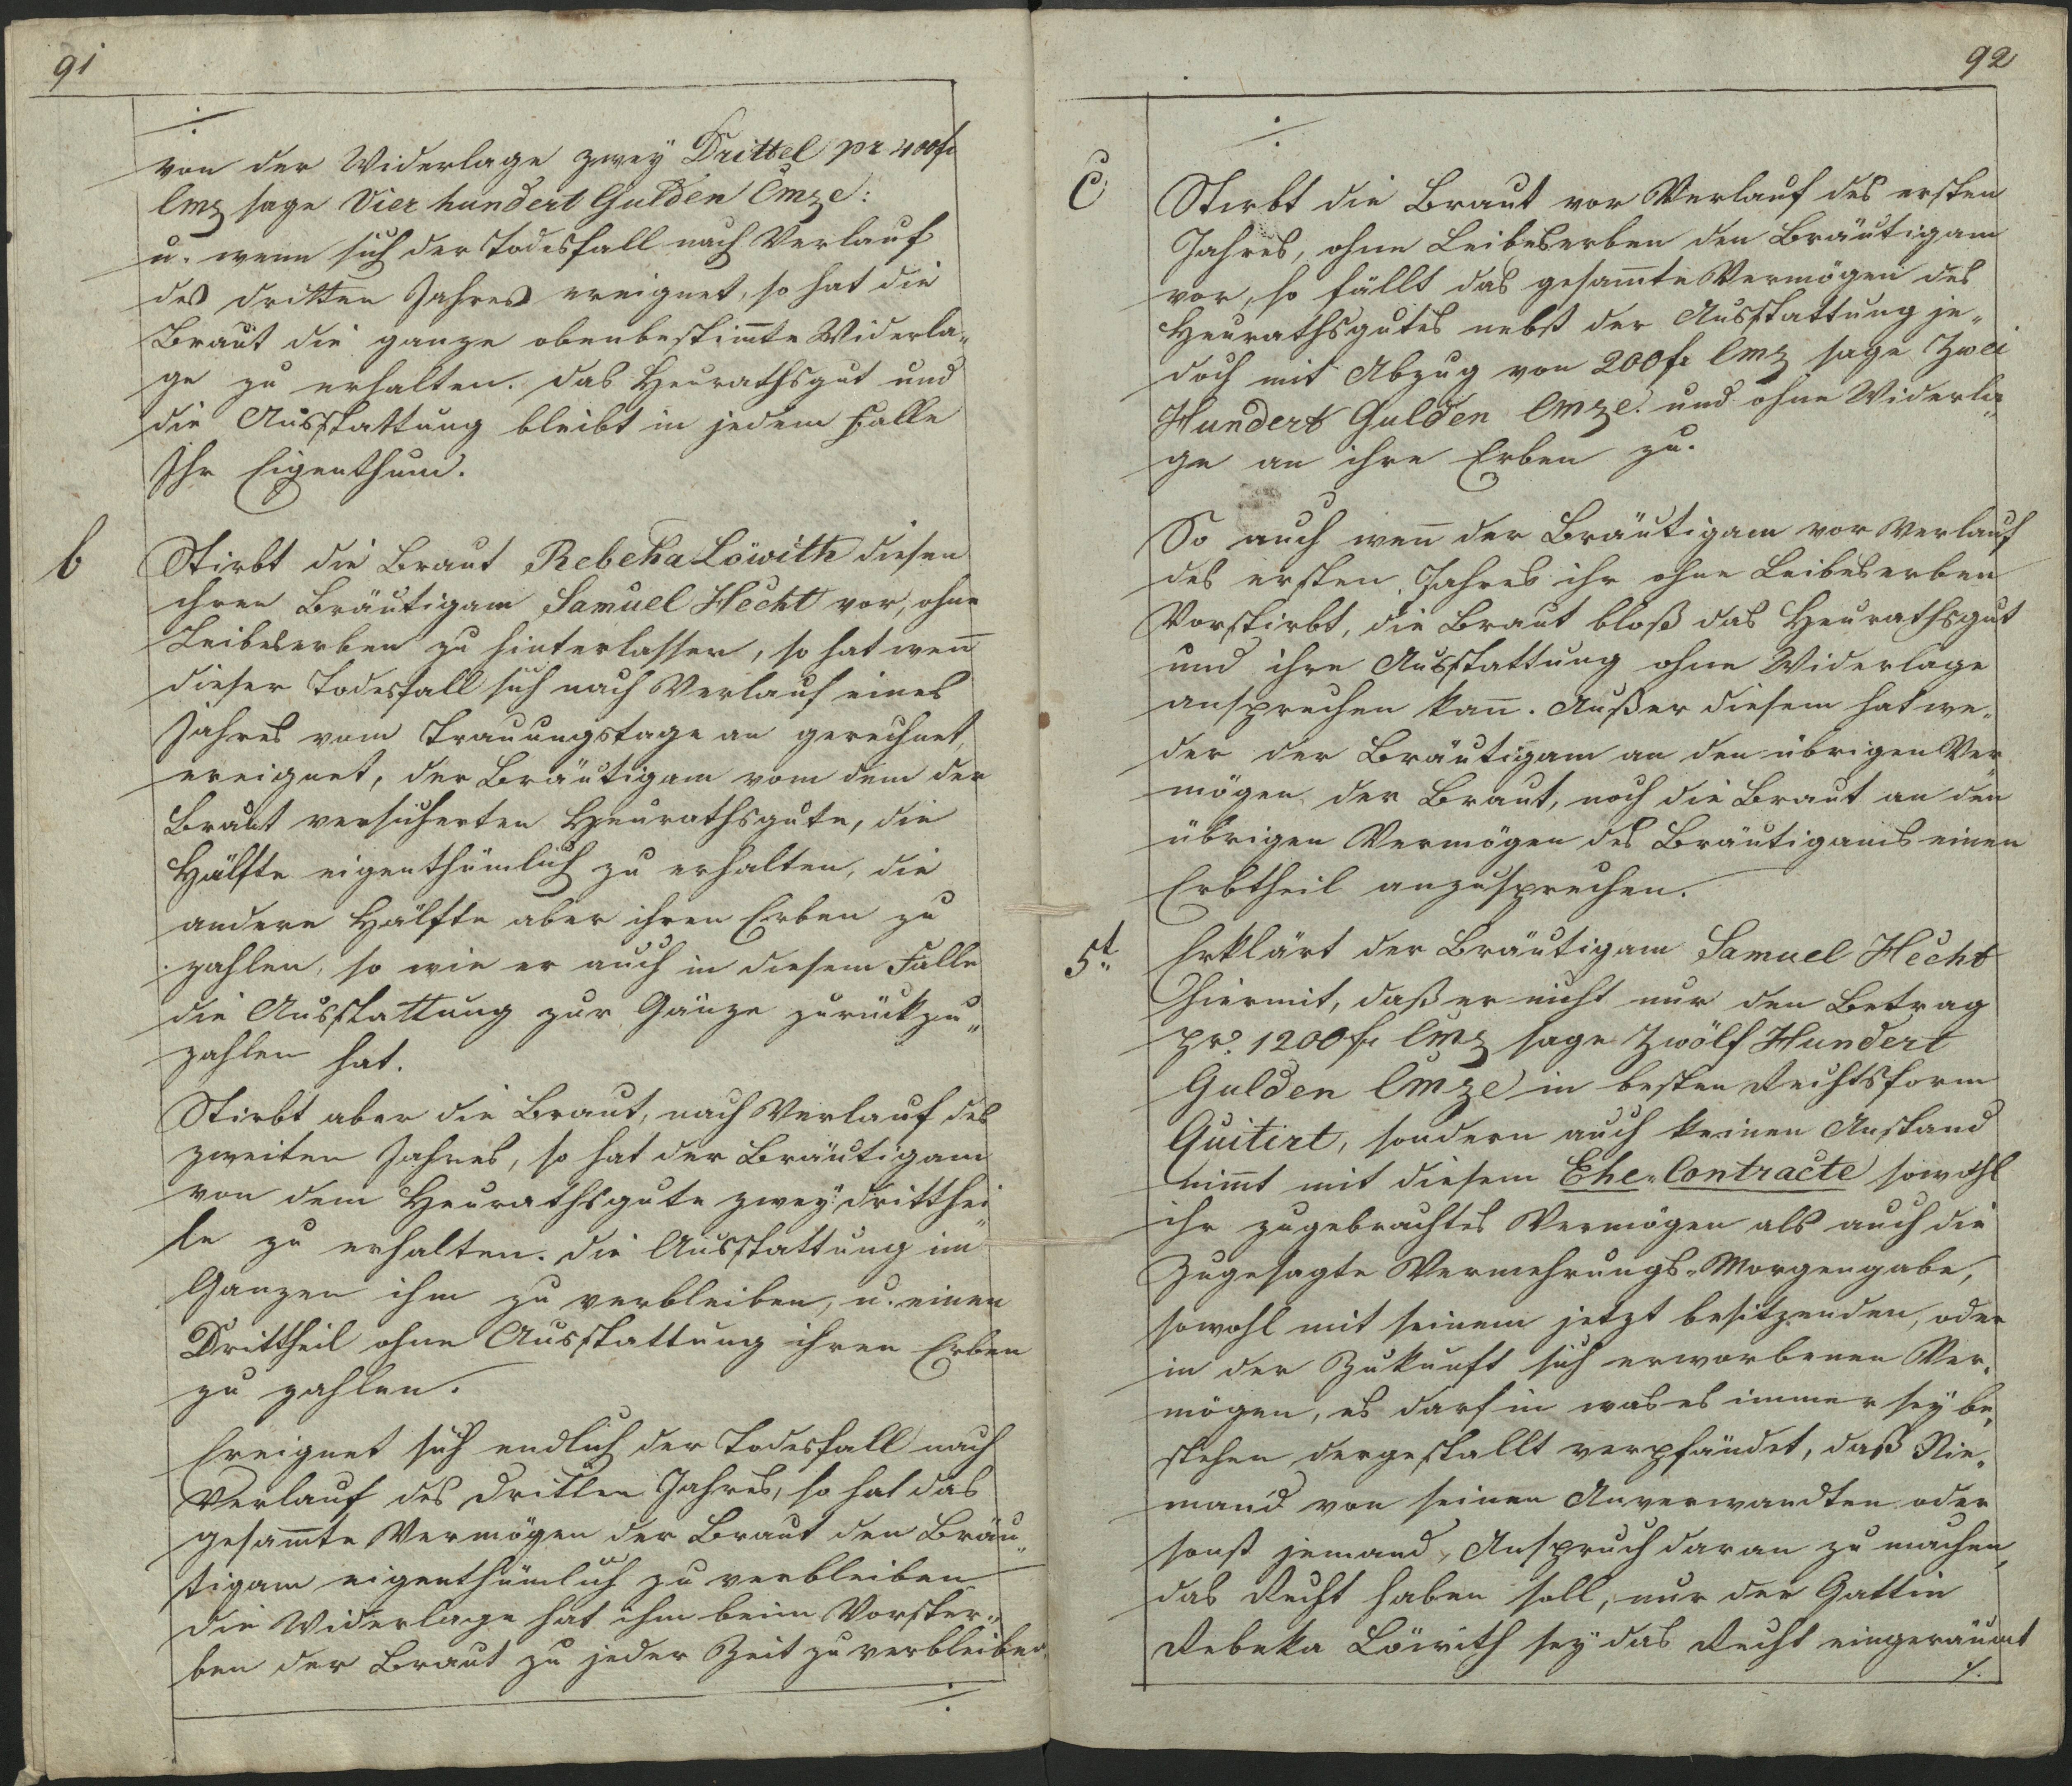 91
./.
von der Widerlage zweÿ Drittel pr 400 f
Cmz sage Vier hundert Gulden Cmze:
u. wenn sich der Todesfall nach Verlauf
des dritten Jahres ereignet, so hat die
Braut die ganze obenbestim̅te Widerla„
ge zu erhalten. Das Heurathsgut und
die Ausstattung bleibt in jedem Falle
Ihr Eigenthum.
b
Stirbt die Braut Rebeka Löwith diesen
ihren Bräutigam Samuel Hecht vor, ohne
Leibeserben zu hinterlassen, so hat wen̅
dieser Todesfall sich nach Verlauf eines
Jahres vom Trauungstage an gerechnet,
ereignet, der Bräutigam vom dem der
Braut versicherten Heurathsgute, die
Hälfte eigenthümlich zu erhalten, die
andere Hälfte aber ihren Erben zu
zahlen, so wie er auch in diesem Falle
die Ausstattung zur Gänze zurückzu„
zahlen hat.
Stirbt aber die Braut, nach Verlauf des
zweiten Jahres, so hat der Bräutigam
von dem Heurathsgute zweÿ dritthei„
le zu erhalten. Die Ausstattung im
Ganzen ihm zu verbleiben, u. einen
Drittheil ohne Ausstattung ihren Erben
zu zahlen.
Ereignet sich endlich der Todesfall nach
Verlauf des dritten Jahres, so hat das
gesam̅te Vermögen der Braut den Bräu„
tigam eigenthümlich zu verbleiben
die Widerlage hat ihm beim Vorster„
ben der Braut zu jeder Zeit zu verbleiben.
./.
92
./.
C
Stirbt die Braut vor Verlauf des ersten
Jahres, ohne Leibeserben den Bräutigam
vor, so fällt das gesam̅te Vermögen des
Heurathsgutes nebst der Ausstattung je„
doch mit Abzug von 200 f Cmz sage Zwei
Hundert Gulden Cmze. und ohne Widerla„
ge an ihre Erben zu.
So auch wen̅ der Bräutigam vor Verlauf
des ersten Jahres ihr ohne Leibeserben
Vorstirbt, die Braut bloß das Heurathsgut
und ihre Ausstattung ohne Widerlage
ansprechen kan̅. Außer diesem hat we„
der der Bräutigam an den übrigen Ver„
mögen der Braut, noch die Braut an den
übrigen Vermögen des Bräutigams einen
Erbtheil anzusprechen.
5t.
Erklärt der Bräutigam Samuel Hecht
hiermit, daß er nicht nur den Betrag
pr. 1200 f Cmz sage Zwölf Hundert
Gulden Cmze in besten Rechtsform
Quitirt, sondern auch keinen Anstand
nim̅t mit diesem Ehe„Contracte sowohl
ihr zugebrachtes Vermögen als auch die
Zugesagte Vermehrungs„Morgengabe,
sowohl mit seinem jetzt besitzenden, oder
in der Zukunft sich erworbenen Ver„
mögen, es darf in was es immer seÿ be„
stehen dergestallt verpfändet, daß Nie„
mand von seinen Anverwandten oder
sonst jemand, Anspruch daran zu machen,
das Recht haben soll, nur der Gattin
Rebeka Löwith seÿ das Recht eingeräumt
./.